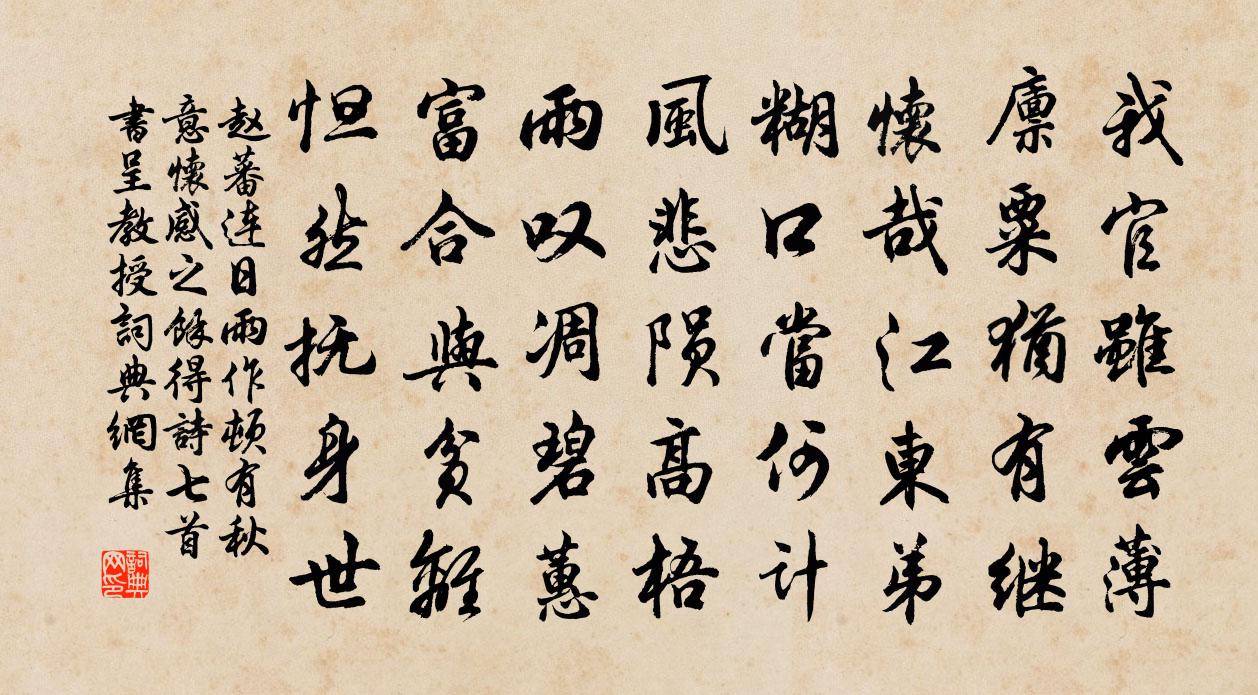 我官雖雲薄
廪粟猶有继
懷哉江東弟
糊口當何计
風悲陨高梧
雨叹凋碧蕙
富合與貧離
怛然抚身世
赵蕃连日雨作顿有秋
意懷感之餘得詩七首
書呈教授詞典網集
詞典网印